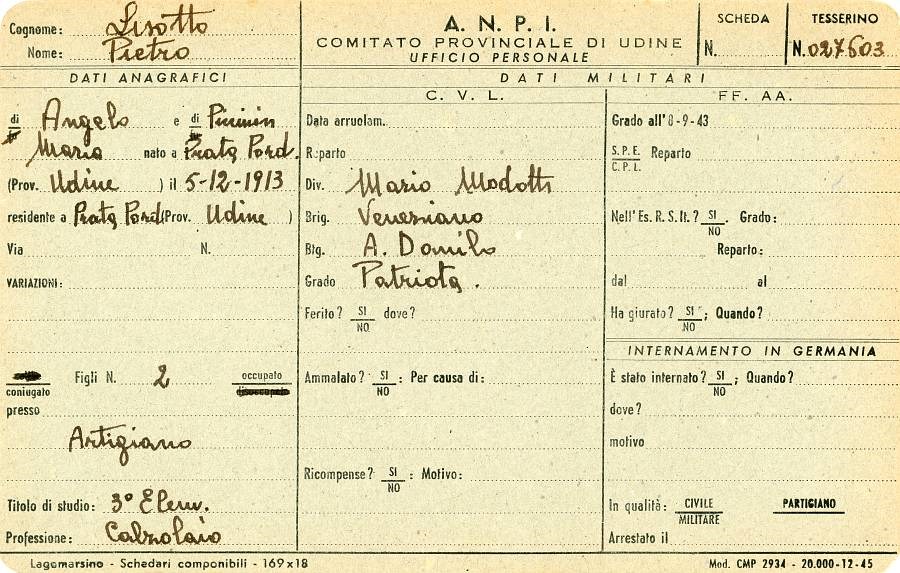 Cognome: Lisotto
Nome: Pietro
A. N. P. I.
COMITATO PROVINCIALE DI UDINE
UFFICIO PERSONALE
SCHEDA
N.
TESSERINO
N. 027503
DATI ANAGRAFICI
DATI MILITARI
di Angelo e di Pinimin
Maria nato a Prata Pord.
(Prov. Udine ) il 5-12-1913
residente a Prata Pord (Prov. Udine )
Via N.
VARIAZIONI:
coniugato Figli N. 2 occupato
disoccupato
presso
Artigiano
Titolo di studio: 3° Elem.
Professione: Calzolaio
C. V. L.
Data arruolam.
Reparto
Div. Mario Modotti
Brig. Veneziano
Btg. A. Danilo
Grado Patriota.
Ferito? SI NO dove?
Ammalato? SI NO : Per causa di:
Ricompense? SI NO : Motivo:
FF. AA.
Grado all'8-9-43
S.P.E. C.P.L. Reparto
Nell'Es. R. S. It.? SI NO . Grado:
Reparto:
dal al
Ha giurato? SI NO ; Quando?
INTERNAMENTO IN GERMANIA
È stato internato? SI NO ; Quando?
dove?
motivo
In qualità: CIVILE MILITARE PARTIGIANO
Arrestato il
Lagomarsino - Schedari componibili - 169x18
Mod. CMP 2934 - 20.000-12-45